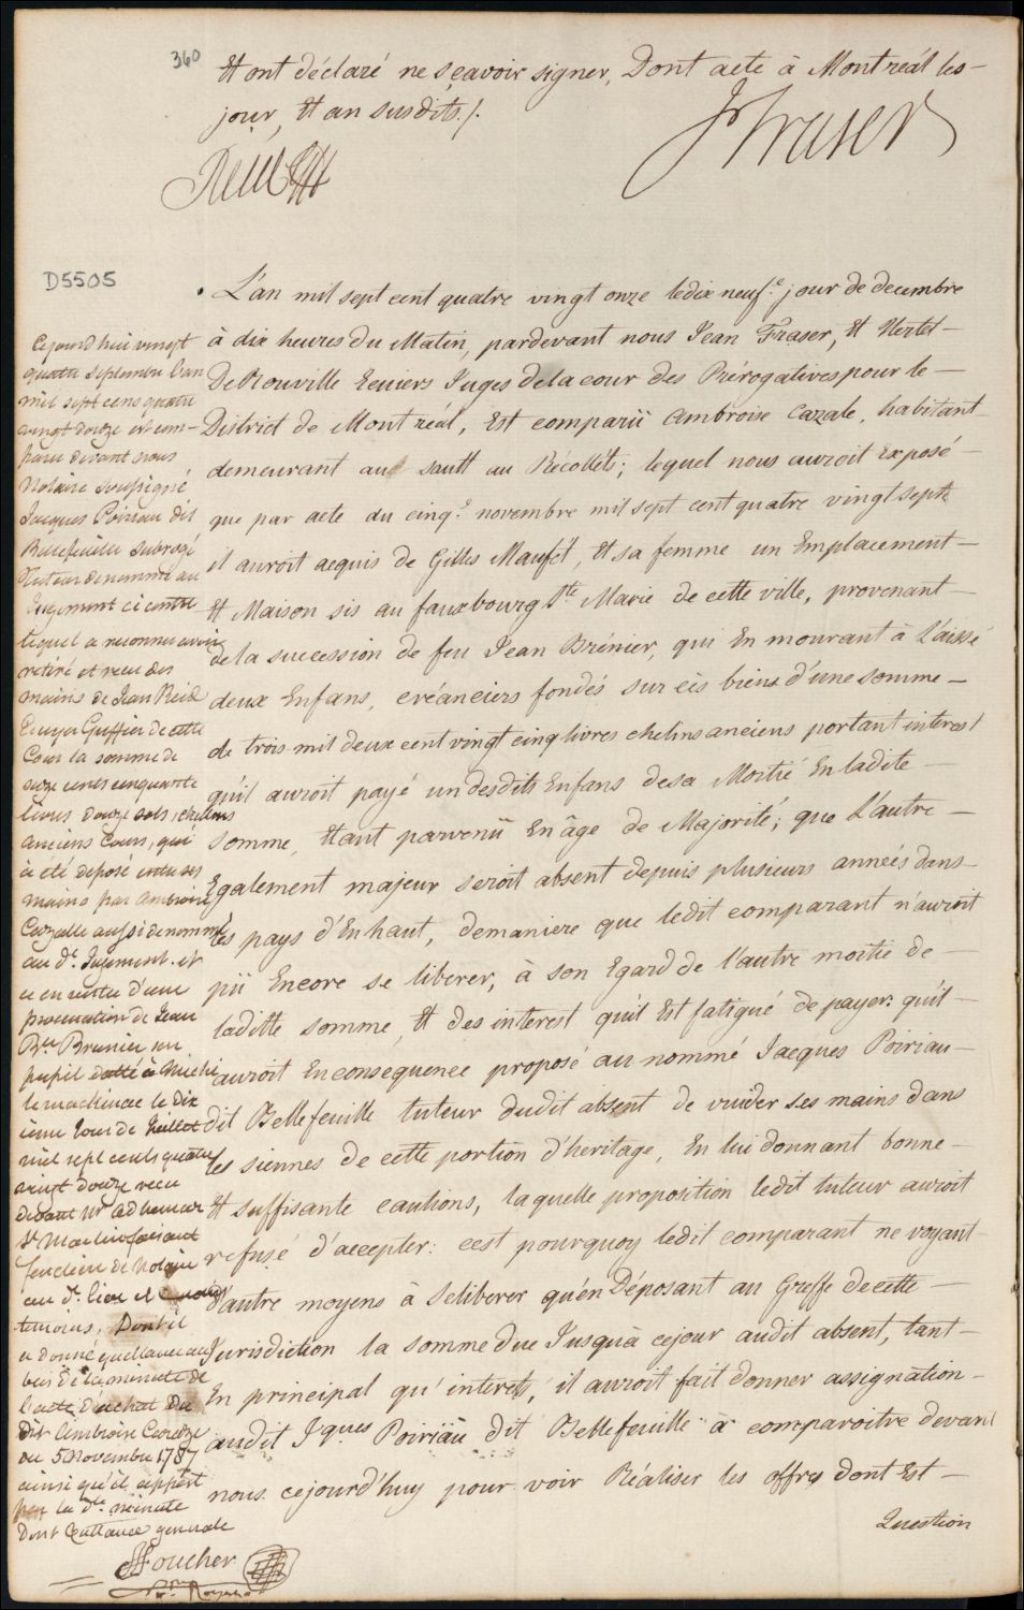 360
Et ont déclaré ne sçavoir signer, Dont acte à Montreál les
jour, Et an susdits./.
JFraser
Reid
D5505
L'an mil sept cent quatre vingt onze ledix neuf.e jour de decembre
à dix heures du Matin, pardevant nous Jean Fraser, Et Hertel
De Rouville Ecuiers Juges dela cour des Prérogatives pour le
District de Mont réal, Est comparü Ambroise Cazale, habitant
demeurant au sault au Récollets; lequel nous auroit Exposé
que par acte du cinq.e novembre mil sept cent quatre vingt sept
il auroit acquis de Gilles Maufét, Et sa femme un Emplacement
Et Maison sis au fauxbourg Ste Marie de cette ville, provenant
dela succession de feu Jean Brénier, qui En mourant à Laissé
deux Enfans, créanciers fondés sur cés biens d'une somme
de trois mil deux cent vingt cinq livres chelins anciens portant interest
qu'il auroit payé un desdits Enfans desa Moitié En ladite
somme, Etant parvenü En âge de Majorité; que L'autre
Egalement majeur seroit absent depuis plusieurs années dans
les pays d'En haut, demaniere que ledit comparant n'auroit
pü Encore se liberer, à son Egard de l'autre moitié de
laditte somme, Et des interest qu'il Est fatigué de payer: qu'il
auroit Enconsequence proposé au nommé Jacques Poiriau
dit Bellefeuille tuteur dudit absent de vuider ses mains dans
les siennes de cette portion d'heritage, En lui donnant bonne
Et suffisante cautions, laquelle proposition ledit tuteur auroit
refusé d'accepter: cest pourquoy ledit comparant ne voyant
d'autre moyens à Seliberer qu'én Déposant au Greffe decette
Jurisdiction la somme due Jusquà cejour audit absent, tant
En principal qu'interets, il auroit fait donner assignation
audit Jques Poiriäu dit Bellefeuille à comparoitre devant
nous cejourd'huy pour voir Réaliser les offres dont Est
Question
Cejourd'hui vingt
quatre Septembre l'an
mil sept cens quatre
vingt douze est com-
paru devant nous
Notaire Soussigné
Jacques Poiriau dit
Bellefeuille subrogé
Tuteur denommé au
Jugement ci contre
lequel a reconnu avoir
retiré et reçu des
mains de Jean Reid
Ecuyer Greffier de cette
Cour la somme de
cents cinquante
livres douze sols chelins
anciens Cours, qui
a été déposé entre ses
mains par Ambroise
Cazalle aussi denommé
au dt. Jugement. et
ce en vertu d'une
procuration de Jean
Bte Brunier son
pupil datté à Michi
limackinac le dix
ieme Jour de Juillet
mil sept cents quatre
vingt douze reçu
devant Mr Adhemar
St Martin faisant
fonction de Notaire
au dt. lieu et
temoins, Dont il
a donné quittance au
bas de la minute de
l'acte d'achat du
dit Ambroise Cazalle
du 5 Novembre 1787
ainsi qu'il appert
par la dte minute
Dont Quittance generale
Foucher